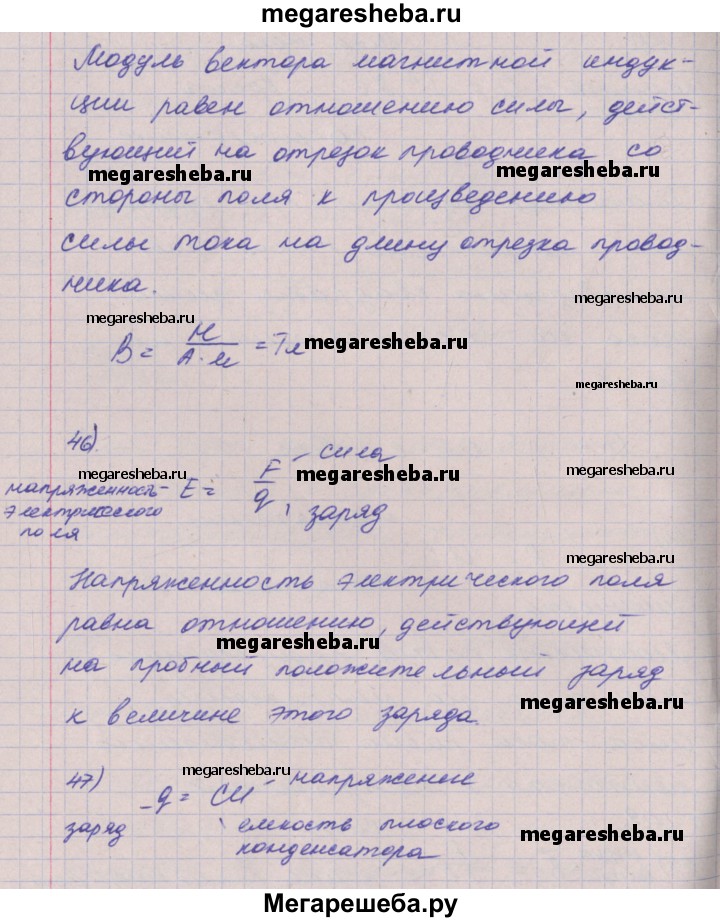 megaresheba.ru
Модуль вектора магнитной индук-
ции равен отношению силы, дейст-
вующий на отрезок проводника со
megaresheba.ru megaresheba.ru
стороны поля к произведению
силы тока на длину отрезка провод-
ника.
megaresheba.ru
megaresheba.ru
B = Н / А·м = Тл megaresheba.ru
megaresheba.ru
46).
- сила
megaresheba.ru megaresheba.ru megaresheba.ru
напряженность - E = F / q, заряд
электрического
поля
megaresheba.ru
Напряженность электрического поля
равна отношению, действующей
megaresheba.ru
на пробный положительный заряд
megaresheba.ru
к величине этого заряда.
47) megaresheba.ru - напряжение
- q = CU
заряд емкость плоского
megaresheba.ru
конденсатора
Мегарешеба.ру